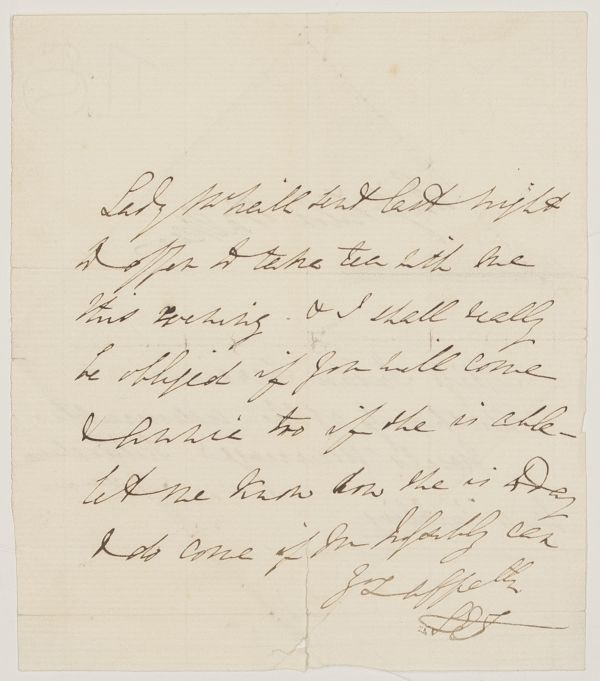 Lady McNeill sent last night
to offer to take tea with me
this evening. & I shall really
be obliged if you will come
& Annie too if she is able –
let me know how she is today
& do come if you possibly can
Yrs affectly